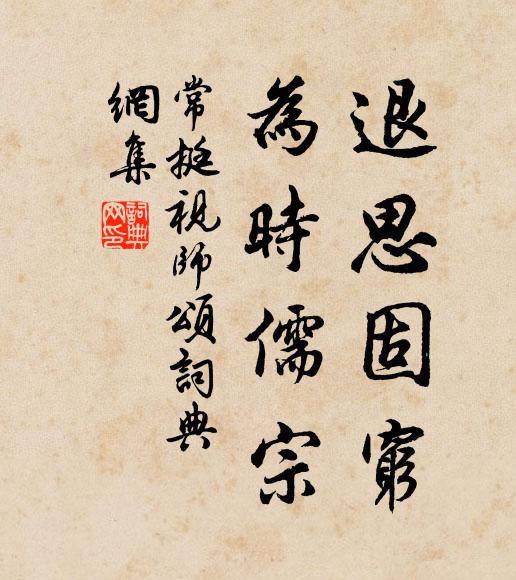 退思固窮
為時儒宗
常挺視師頌詞典
網集
詞典
网印